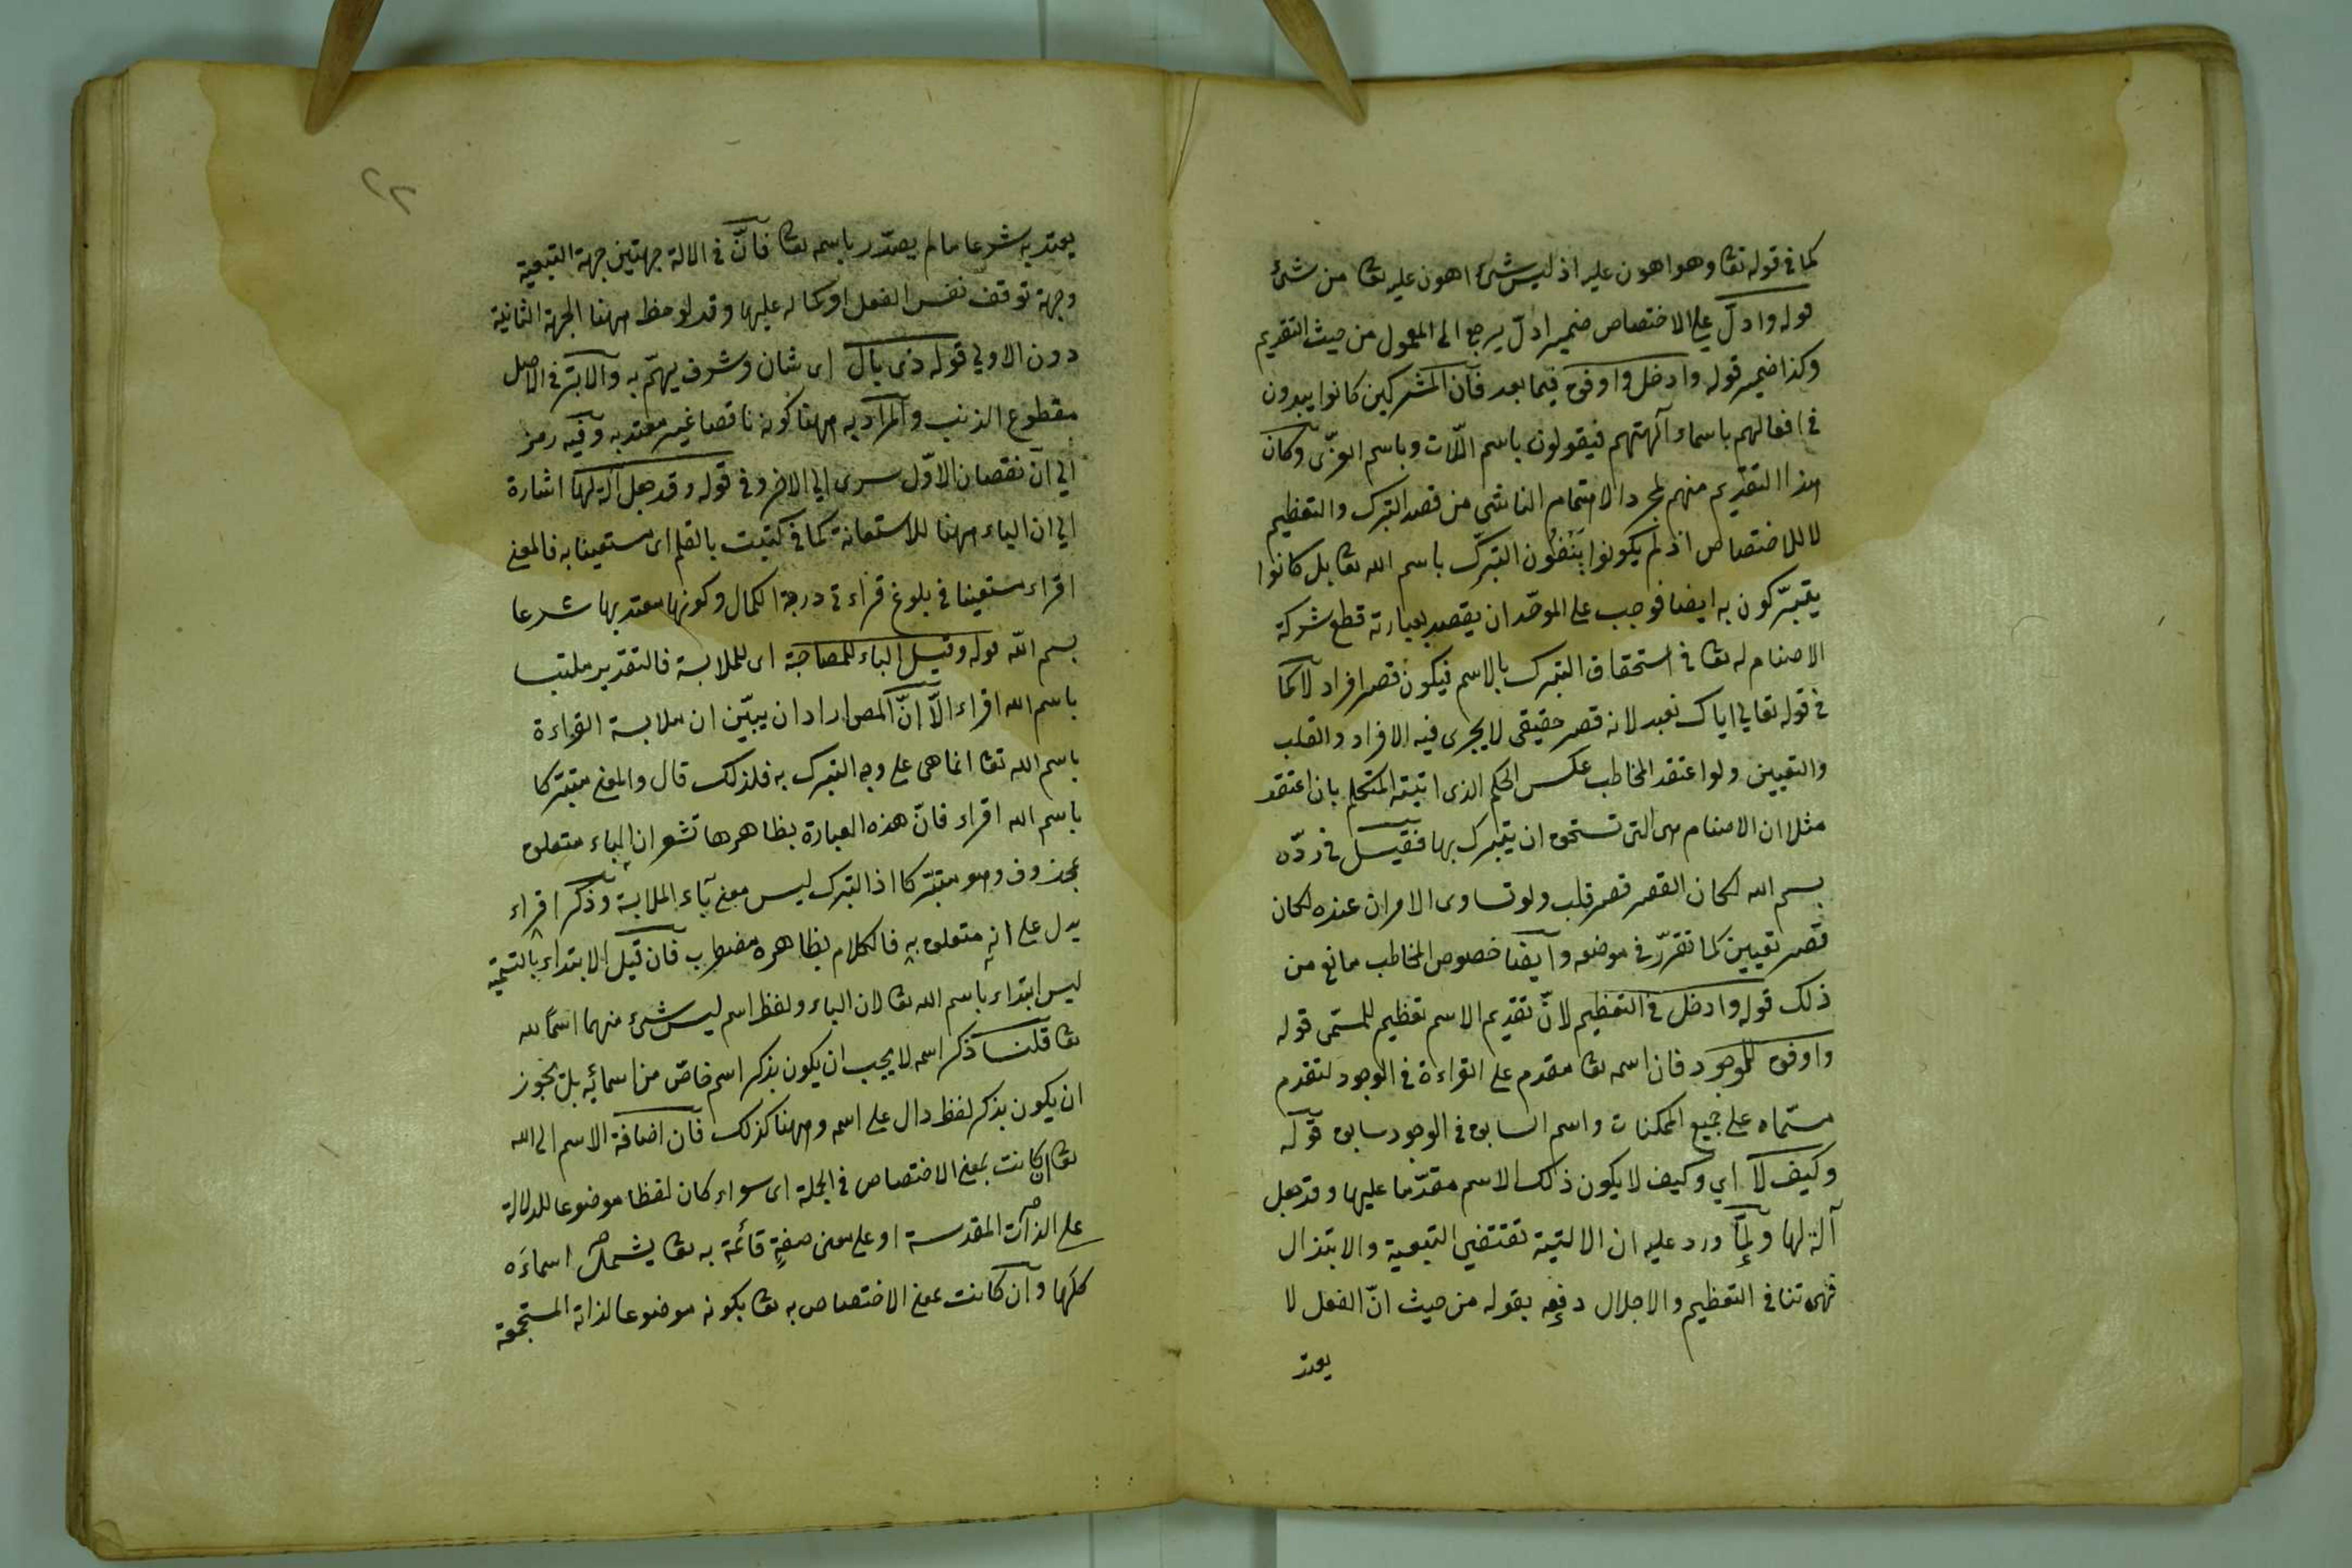 كما في قوله تعا وهو اهون عليه اذ ليس شئ اهون عليه تعا من شئ
قوله وادلّ علي الاختصاص ضمير ادلّ يرجع الى المعمول من حيث التقديم
وكذا ضمير قوله وادخل واوفق فيما بعد فان المشركين كانوا يبدون
في افعالهم باسماء آلهتهم فيقولون باسم اللّات وباسم العزّى وكان
هذا التقديم منهم لمجرد الاهتمام الناشي من قصد التبرك والتعظيم
لا للاختصاص اذ لم يكونوا ينفون التبرّك باسم الله تعا بل كانوا
يتبرّكون به ايضا فوجب على الموحّد ان يقصد بعبارته قطع شركة
الاصنام له تعا في استحقاق التبرك بالاسم فيكون قصر افراد لا كما
في قوله تعالي اياك نعبد لانه قصر حقيقي لا يجرى فيه الافراد والقلب
والتعيين ولو اعتقد المخاطب عكس الحكم الذى اثبته المتكلم بان اعتقد
مثلا ان الاصنام هى التى تستحق ان يتبرك بها فقيل في ردّه
بسم الله لكان القصر قصر قلب ولو تساوى الامران عنده لكان
قصر تعيين كما تقرّر في موضعه وايضا خصوص المخاطب مانع من
ذلك قوله وادخل في التعظيم لانّ تقديم الاسم تعظيم للمسمّى قوله
واوفق للوجود فان اسمه تعا مقدم على القراءة في الوجود لتقدم
مسمّاه على جميع الممكنات واسم السابق في الوجود سابق قوله
وكيف لا اي وكيف لا يكون ذلك الاسم مقدّما عليها وقد جعل
آلة لها ولمّا ورد عليه ان الالتية تقتضي التبعية والابتذال
فهى تنافي التعظيم والاجلال دفعه بقوله من حيث انّ الفعل لا
يعتد
٢٢
يعتد به شرعا ما لم يصدّر باسمه تعا فانّ في الالة جهتين جهة التبعية
وجهة توقف نفس الفعل او كماله عليها وقد لوحظ ههنا الجهة الثانية
دون الاولي قوله ذى بال اى شان وشرف يهتمّ به والابتر في الاصل
مقطوع الذنب والمراد به ههنا كونه ناقصا غير معتد به وفيه رمز
الي انّ نقصان الاوّل سرى الي الاخر وفي قوله وقد جعل آلة لها اشارة
الي ان الباء ههنا للاستعانة كما في كتبت بالقلم اى مستعينا به فالمعنى
اقراء مستعينا في بلوغ قراءتي درجة الكمال وكونها معتد بها شرعا
بسم اللّه قوله وقيل الباء للمصاحبة اى للملابسة فالتقدير ملتبسا
باسم الله اقراء الّا انّ المص اراد ان يبيّن ان ملابسة القراءة
باسم الله تعا انما هى على وجه التبرك به فلذلك قال والمعنى متبرّكا
باسم الله اقراء فانّ هذه العبارة بظاهرها تشعر ان الباء متعلق
بمحذوف وهو متبرّكا اذ التبرك ليس معنى باء الملابسة وذكر اقراء
يدل على انه متعلق به فالكلام بظاهره مضطرب فان قيل الابتداء بالتسمية
ليس ابتداء باسم الله تعا لان الباء ولفظ اسم ليس شئ منهما اسما لله
تعا قلنا ذكر اسمه لا يجب ان يكون بذكر اسم خاصّ من اسمائه بل يجوز
ان يكون بذكر لفظ دال على اسمه وههنا كذلك فان اضافة الاسم الى الله
تعا ان كانت بمعنى الاختصاص في الجملة اى سواء كان لفظا موضوعا للدلالة
على الذات المقدسة او على معنى صفةٍ قائمة به تعا يشمل اسماءَه
كلها وان كانت بمعنى الاختصاص به تعا بكونه موضوعا لذاته المستجمعة